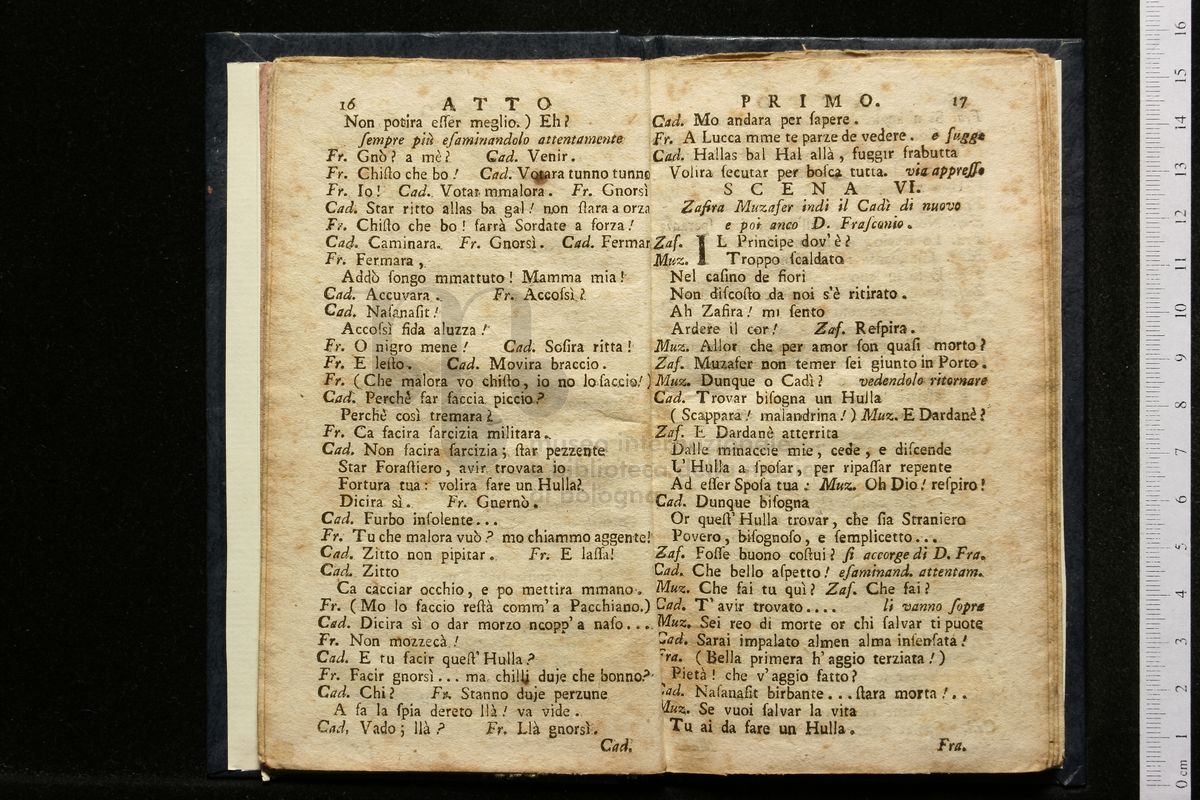 16 ATTO
Non potira eſſer meglio.) Eh?
ſempre più eſaminandolo attentamente
Fr. Gnò? a mè? Cad. Venir.
Fr. Chiſto che bo! Cad. Votara tunno tunno
Fr. Io! Cad. Votar mmalora. Fr. Gnorsì
Cad. Star ritto allas ba gal! non ſtara a orza
Fr. Chiſto che bo! ſarrà Sordate a forza!
Cad. Caminara. Fr. Gnorsì. Cad. Fermar
Fr. Fermara,
Addò ſongo mmattuto! Mamma mia!
Cad. Accuvara. Fr. Accoſsì?
Cad. Naſanaſit!
Accoſsì fida aluzza!
Fr. O nigro mene! Cad. Soſira ritta!
Fr. E leſto. Cad. Movira braccio.
Fr. (Che malora vo chiſto, io no lo faccio!)
Cad. Perchè far faccia piccio?
Perchè così tremara?
Fr. Ca facira ſarcizia militara.
Cad. Non facira ſarcizia; ſtar pezzente
Star Foraſtiero, avir trovata io
Fortura tua: volira fare un Hulla?
Dicira sì. Fr. Gnernò.
Cad. Furbo inſolente...
Fr. Tu che malora vuò? mo chiammo aggente!
Cad. Zitto non pipitar. Fr. E laſſa!
Cad. Zitto
Ca cacciar occhio, e po mettira mmano.
Fr. (Mo lo faccio reſtà comm' a Pacchiano.)
Cad. Dicira sì o dar morzo ncopp' a naſo...
Fr. Non mozzecà!
Cad. E tu facir queſt' Hulla?
Fr. Facir gnorsì... ma chilli duje che bonno?
Cad. Chi? Fr. Stanno duje perzune
A fa la ſpia dereto llà! va vide.
Cad. Vado; llà? Fr. Llà gnorsì.
Cad.
PRIMO. 17
Cad. Mo andara per ſapere.
Fr. A Lucca mme te parze de vedere. e fugge
Cad. Hallas bal Hal allà, fuggir frabutta
Volira ſecutar per boſca tutta. via appreſſo
SCENA VI.
Zafira Muzafer indi il Cadì di nuovo
e poi anco D. Fraſconio.
Zaf. IL Principe dov'è?
Muz. Troppo ſcaldato
Nel caſino de fiori
Non diſcoſto da noi s'è ritirato.
Ah Zafira! mi ſento
Ardere il cor! Zaf. Reſpira.
Muz. Allor che per amor ſon quaſi morto?
Zaf. Muzafer non temer ſei giunto in Porto.
Muz. Dunque o Cadì? vedendolo ritornare
Cad. Trovar biſogna un Hulla
(Scappara! malandrina!) Muz. E Dardanè?
Zaf. E Dardanè atterrita
Dalle minaccie mie, cede, e diſcende
L'Hulla a ſpoſar, per ripaſſar repente
Ad eſſer Spoſa tua: Muz. Oh Dio! reſpiro!
Cad. Dunque biſogna
Or queſt' Hulla trovar, che ſia Straniero
Povero, biſognoſo, e ſemplicetto...
Zaf. Foſſe buono coſtui? ſi accorge di D. Fra.
Cad. Che bello aſpetto! eſaminand. attentam.
Muz. Che fai tu quì? Zaf. Che fai?
Cad. T' avir trovato.... li vanno ſopra
Muz. Sei reo di morte or chi ſalvar ti puote
Cad. Sarai impalato almen alma inſenſata!
Fra. (Bella primera h' aggio terziata!)
Pietà! che v'aggio fatto?
Cad. Naſanaſit birbante...ſtara morta!..
Muz. Se vuoi ſalvar la vita
Tu ai da fare un Hulla.
Fra.